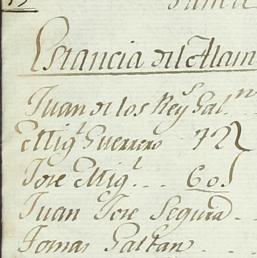 Estancia del Alam
Juan de los Reys Gal.n
Mig.l Guerrero 42
Jose Mig.l . . . 60.
Juan Jose Segura . .
Tomas Gaitan . . .